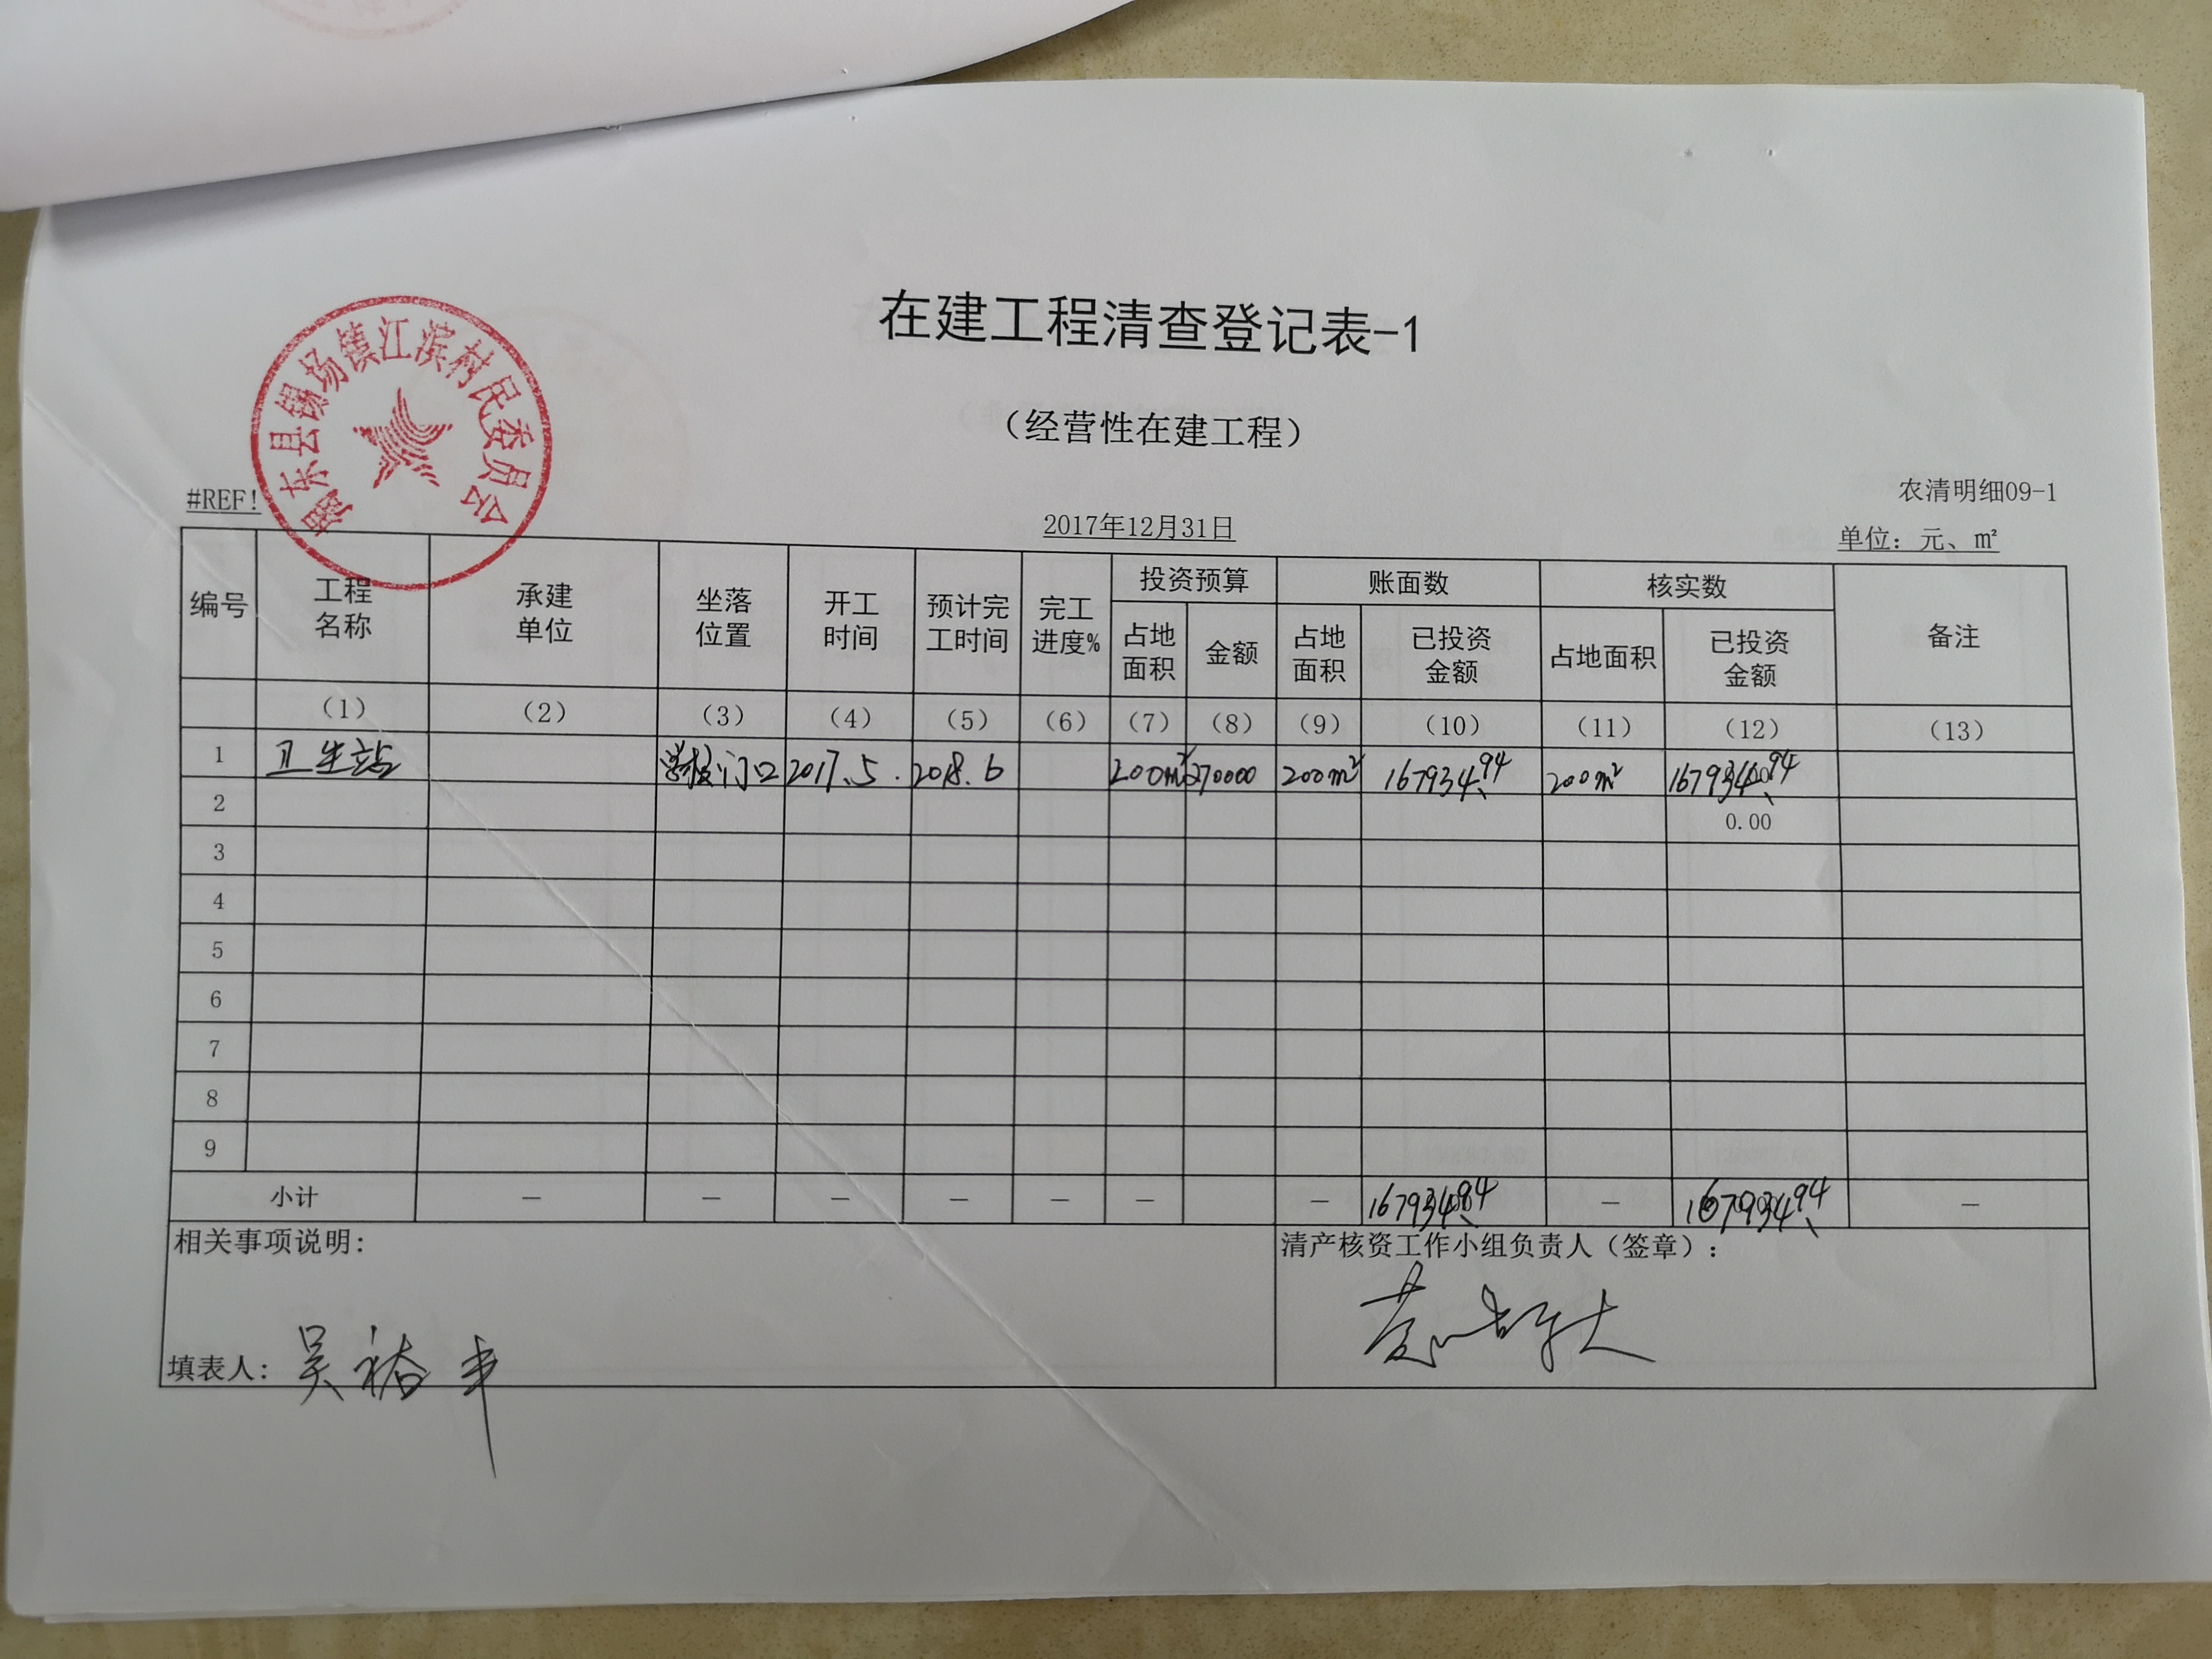 在建工程清查登记表-1
（经营性在建工程）
揭东县锡场镇江滨村民委员会
农清明细09-1
#REF!
2017年12月31日
单位：元、㎡
编号 工程名称 承建单位 坐落位置 开工时间 预计完工时间 完工进度% 投资预算 账面数 核实数 备注
占地面积 金额 占地面积 已投资金额 占地面积 已投资金额
（1） （2） （3） （4） （5） （6） （7） （8） （9） （10） （11） （12） （13）
1 卫生站 学校门口 2017.5. 2018.6 200m² 270000 200m² 167934.94 200m² 167934.94
2 0.00
3
4
5
6
7
8
9
小计 — — — — — — — 167934.94 — 167934.94 —
相关事项说明:
清产核资工作小组负责人（签章）:
填表人: 吴裕丰